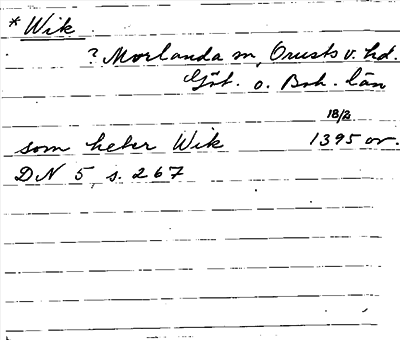 * Wik
? Morlanda sn, Orusts v. hd.
Göt. o. Boh. län
18/2
som heter Wik 1395 or.
DN 5, s. 267